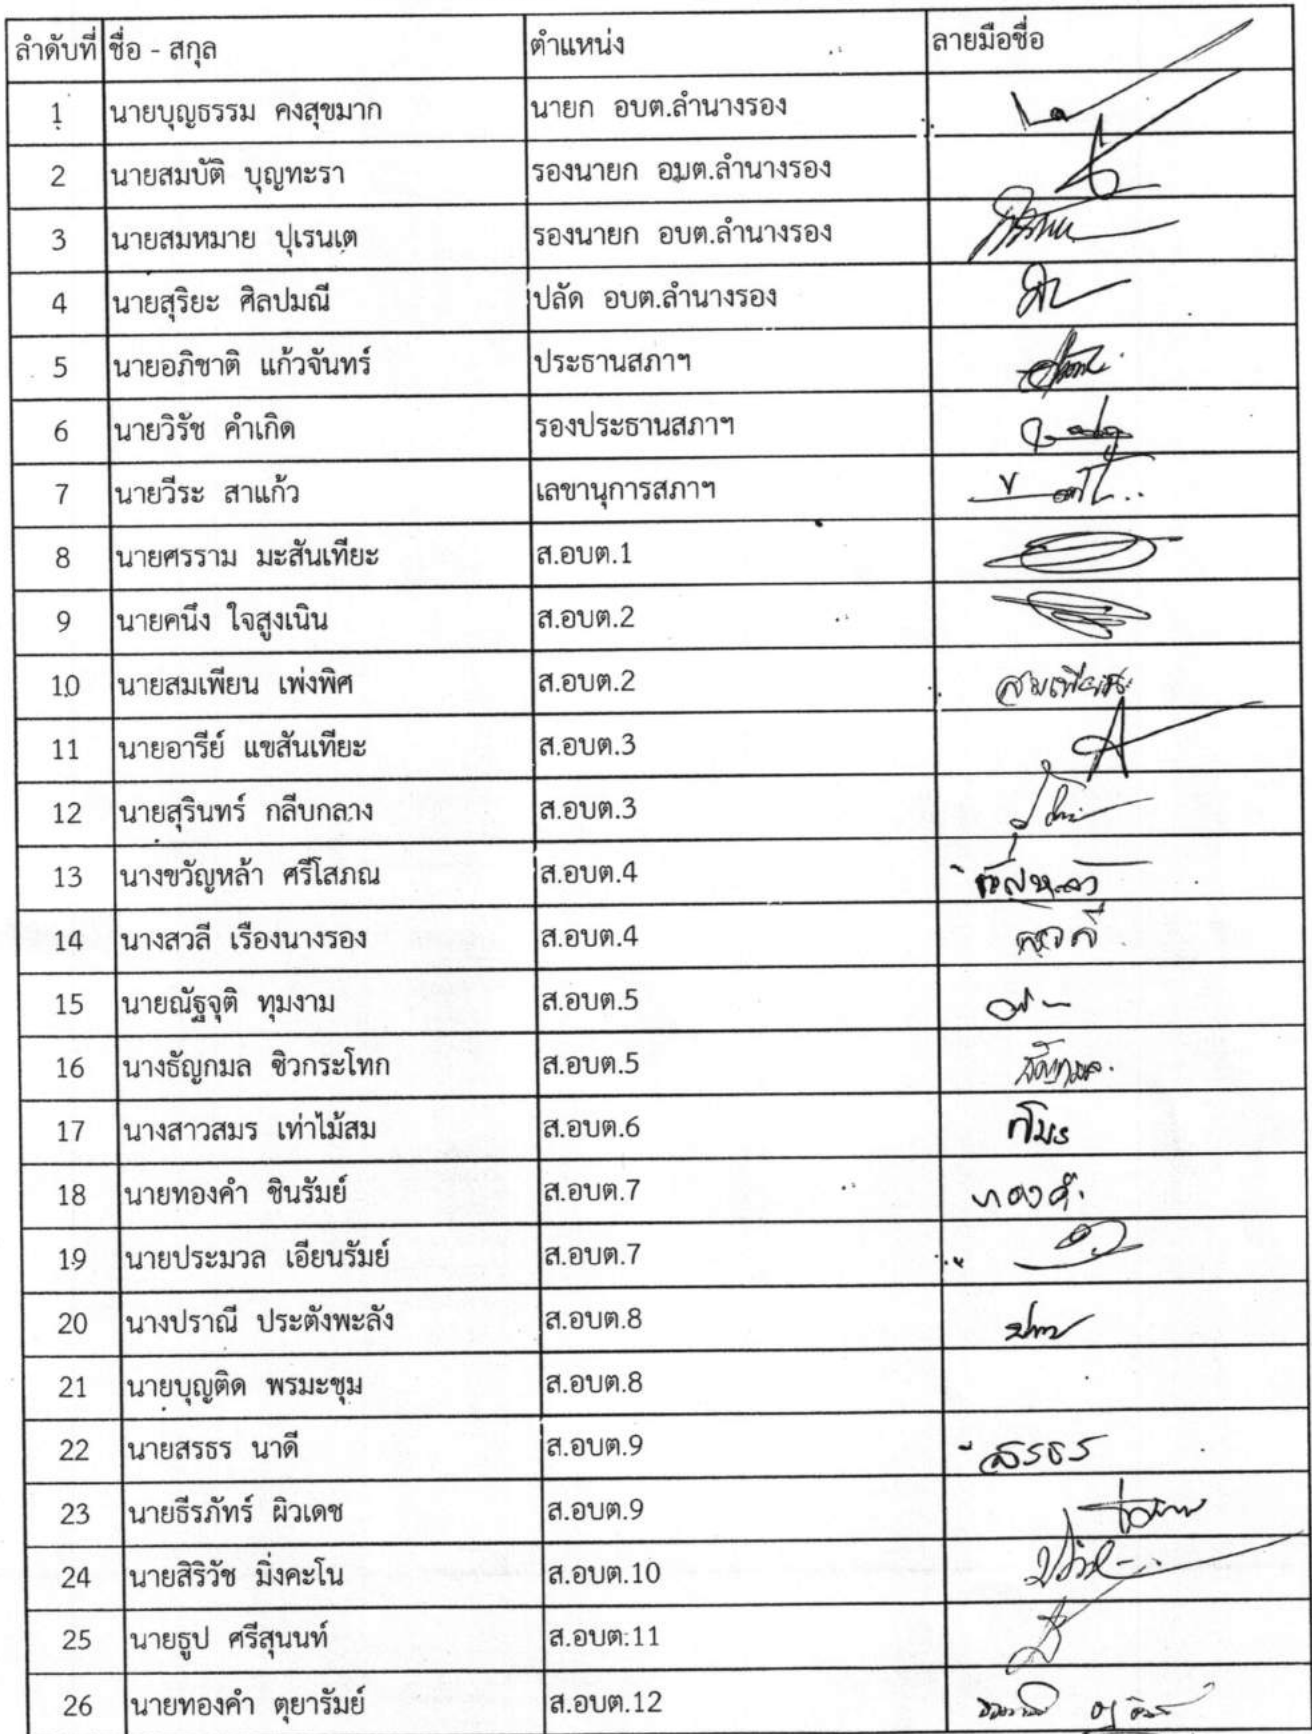 ลำดับที่ ชื่อ - สกุล ตำแหน่ง ลายมือชื่อ
1 นายบุญธรรม คงสุขมาก นายก อบต.ลำนางรอง
2 นายสมบัติ บุญทะรา รองนายก อบต.ลำนางรอง
3 นายสมหมาย ปุเรนเต รองนายก อบต.ลำนางรอง
4 นายสุริยะ ศิลปมณี ปลัด อบต.ลำนางรอง
5 นายอภิชาติ แก้วจันทร์ ประธานสภาฯ
6 นายวิรัช คำเกิด รองประธานสภาฯ
7 นายวีระ สาแก้ว เลขานุการสภาฯ
8 นายศรราม มะสันเทียะ ส.อบต.1
9 นายคนึง ใจสูงเนิน ส.อบต.2
10 นายสมเพียน เพ่งพิศ ส.อบต.2 สมเพียน
11 นายอารีย์ แขสันเทียะ ส.อบต.3
12 นายสุรินทร์ กลีบกลาง ส.อบต.3
13 นางขวัญหล้า ศรีโสภณ ส.อบต.4
14 นางสวลี เรืองนางรอง ส.อบต.4 สวลี
15 นายณัฐจุติ ทุมงาม ส.อบต.5
16 นางธัญกมล ชิวกระโทก ส.อบต.5 ธัญกมล
17 นางสาวสมร เท่าไม้สม ส.อบต.6
18 นายทองคำ ชินรัมย์ ส.อบต.7
19 นายประมวล เอียนรัมย์ ส.อบต.7
20 นางปราณี ประตังพะลัง ส.อบต.8
21 นายบุญติด พรมะชุม ส.อบต.8
22 นายสรธร นาดี ส.อบต.9 สรธร
23 นายธีรภัทร์ ผิวเดช ส.อบต.9
24 นายสิริวัช มิ่งคะโน ส.อบต.10
25 นายธูป ศรีสุนนท์ ส.อบต.11
26 นายทองคำ ตุยารัมย์ ส.อบต.12